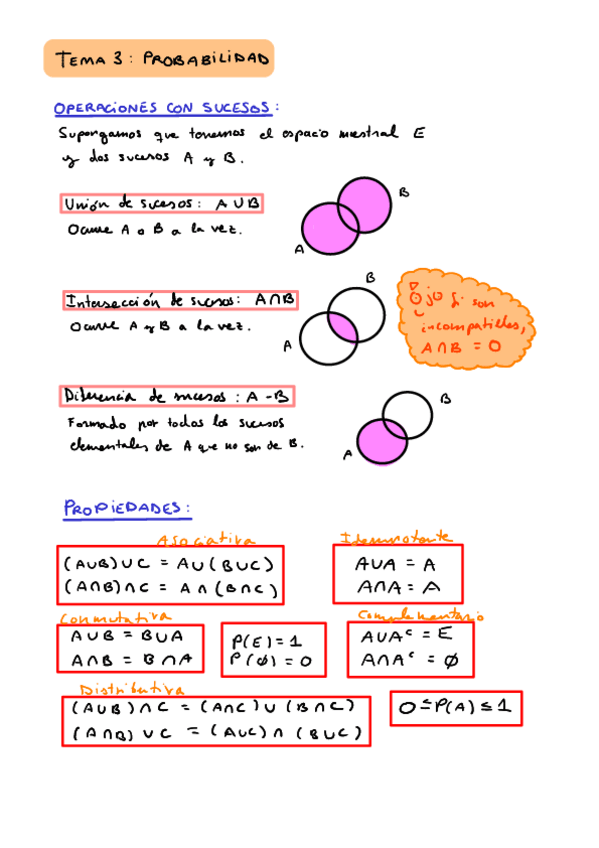 TEMA 3: PROBABILIDAD
OPERACIONES CON SUCESOS:
Supongamos que tenemos el espacio muestral E
y dos sucesos A y B.
Unión de sucesos: A∪B
Ocurre A o B a la vez.
A
B
Intersección de sucesos: A∩B
Ocurre A y B a la vez.
A
B
Ojo si son
incompatibles,
A∩B = 0
Diferencia de sucesos: A - B
Formado por todos los sucesos
elementales de A que no son de B.
A
B
PROPIEDADES:
Asociativa
(A∪B)∪C = A∪(B∪C)
(A∩B)∩C = A∩(B∩C)
Idempotente
A∪A = A
A∩A = A
Conmutativa
A∪B = B∪A
A∩B = B∩A
P(E)=1
P(∅)=0
Complementario
A∪Aᶜ = E
A∩Aᶜ = ∅
Distributiva
(A∪B)∩C = (A∩C)∪(B∩C)
(A∩B)∪C = (A∪C)∩(B∪C)
0≤P(A)≤1